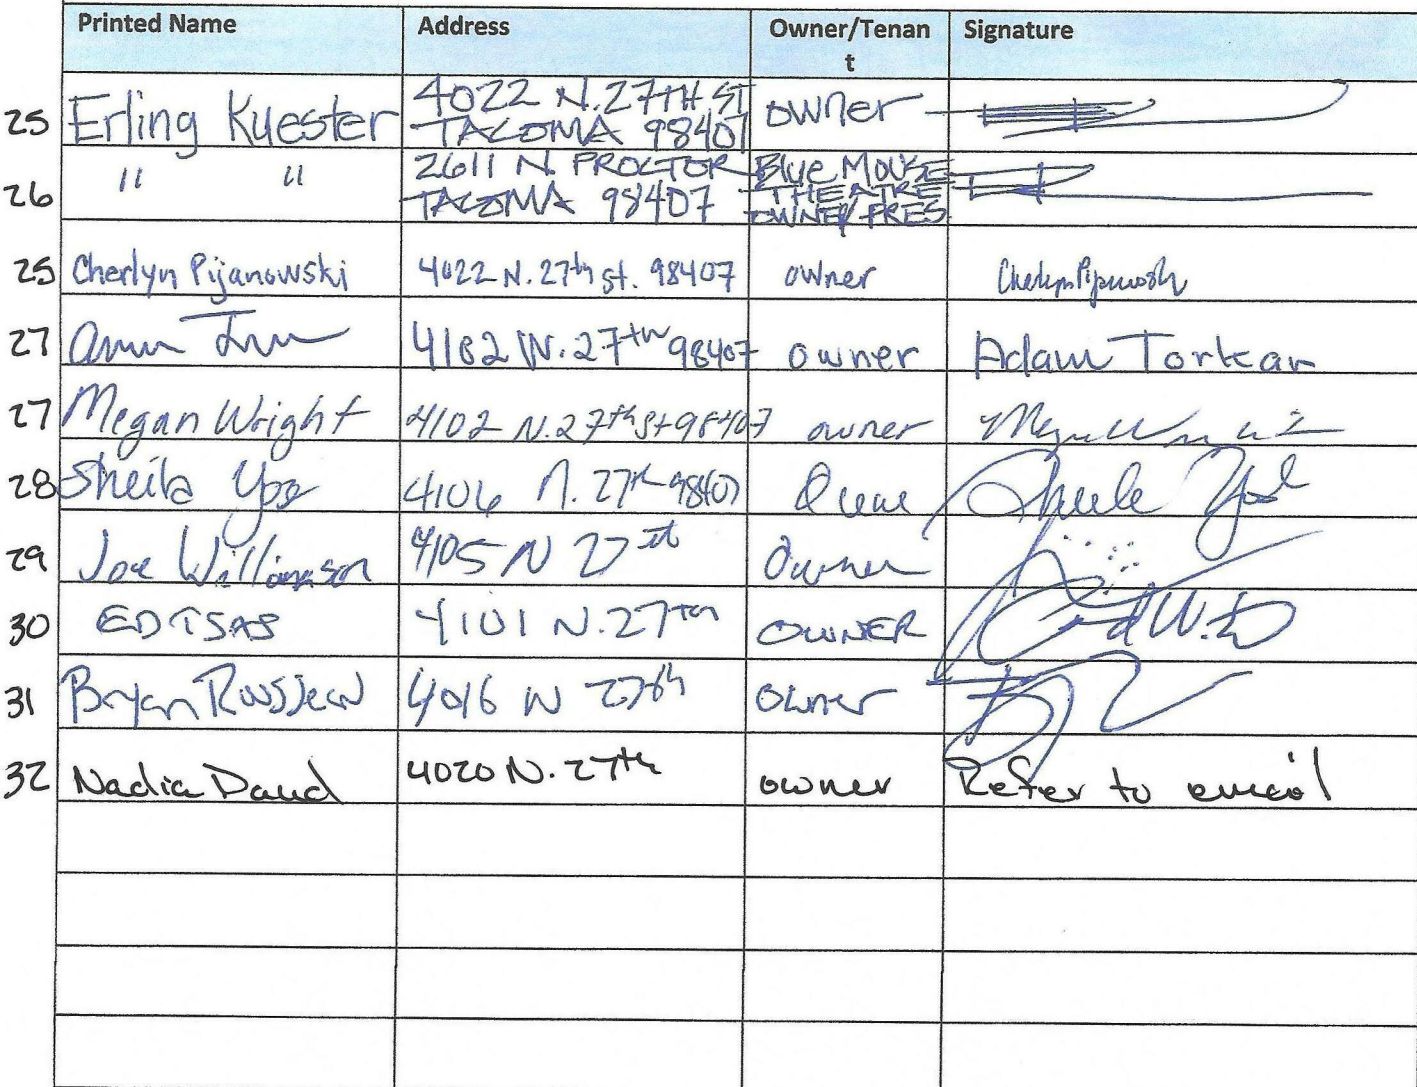 Printed Name Address Owner/Tenan Signature
t
25 Erling Kuester 4022 N. 27TH ST owner
TACOMA 98407
26 " " 2611 N. PROCTOR Blue MOUSE
TACOMA 98407 THEATRE
OWNER/PRES
25 Cherlyn Pijanowski 4022 N. 27th st. 98407 owner Cherlyn Pijanowski
27 4102 N. 27th 98407 owner Adam Torkar
27 Megan Wright 4102 N. 27th St 98407 owner
28 Sheila Yost 4106 N. 27th 98407 Owner Sheila Yost
29 Joe Williamson 4105 N 27 st Owner
30 ED TSAS 4101 N. 27TH OWNER
31 Bryan 4016 N 27th owner
32 Nadia Daud 4020 N. 27th owner Refer to email